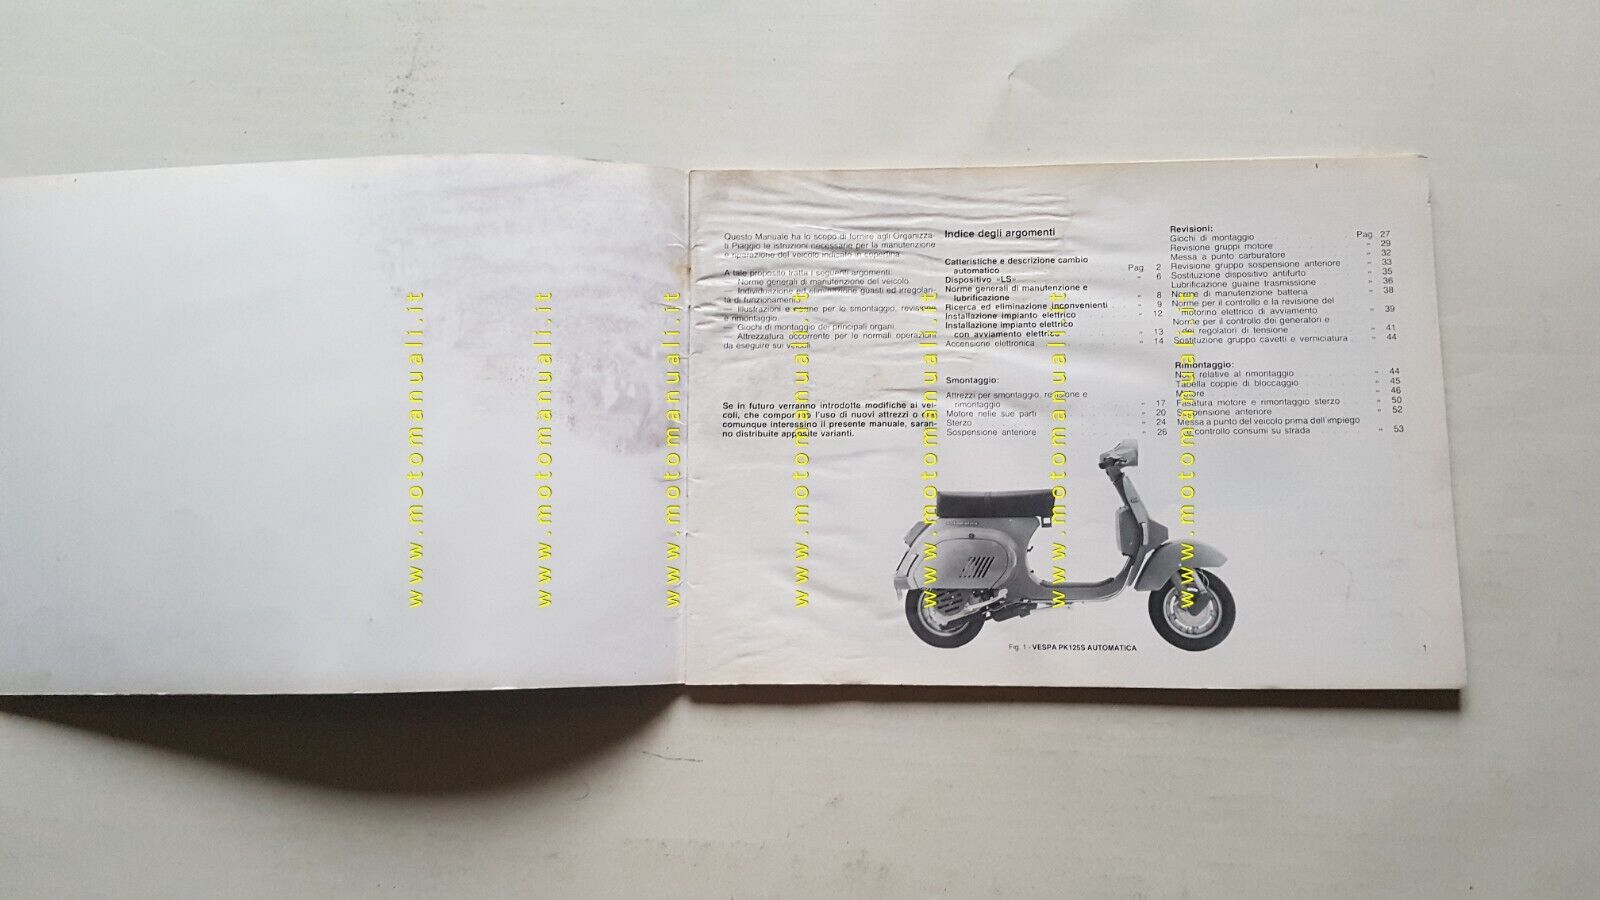 Questo Manuale ha lo scopo di fornire agli Organizza-
ti Piaggio le istruzioni necessarie per la manutenzione
e riparazione del veicolo indicato in copertina.
A tale proposito tratta i seguenti argomenti:
— Norme generali di manutenzione del veicolo.
— Individuazione ed eliminazione guasti ed irregolari-
tà di funzionamento.
— Illustrazioni e norme per lo smontaggio, revisione
e rimontaggio.
— Giochi di montaggio dei principali organi.
— Attrezzatura occorrente per le normali operazioni
da eseguire sui veicoli.
Se in futuro verranno introdotte modifiche ai vei-
coli, che comportino l'uso di nuovi attrezzi o che
comunque interessino il presente manuale, saran-
no distribuite apposite varianti.
Indice degli argomenti
Catteristiche e descrizione cambio
automatico Pag. 2
Dispositivo «LS» » 6
Norme generali di manutenzione e
lubrificazione » 8
Ricerca ed eliminazione inconvenienti » 9
Installazione impianto elettrico » 12
Installazione impianto elettrico
con avviamento elettrico » 13
Accensione elettronica » 14
Smontaggio:
Attrezzi per smontaggio, revisione e
rimontaggio » 17
Motore nelle sue parti » 20
Sterzo » 24
Sospensione anteriore » 26
Revisioni:
Giochi di montaggio Pag. 27
Revisione gruppi motore » 29
Messa a punto carburatore » 32
Revisione gruppo sospensione anteriore » 33
Sostituzione dispositivo antifurto » 35
Lubrificazione guaine trasmissione » 36
Norme di manutenzione batteria » 38
Norme per il controllo e la revisione del
motorino elettrico di avviamento » 39
Norme per il controllo dei generatori e
dei regolatori di tensione » 41
Sostituzione gruppo cavetti e verniciatura » 44
Rimontaggio:
Note relative al rimontaggio » 44
Tabella coppie di bloccaggio » 45
Motore » 46
Fasatura motore e rimontaggio sterzo » 50
Sospensione anteriore » 52
Messa a punto del veicolo prima dell'impiego
e controllo consumi su strada » 53
Fig. 1 - VESPA PK125S AUTOMATICA
1
www.motomanuali.it
www.motomanuali.it
www.motomanuali.it
www.motomanuali.it
www.motomanuali.it
www.motomanuali.it
www.motomanuali.it